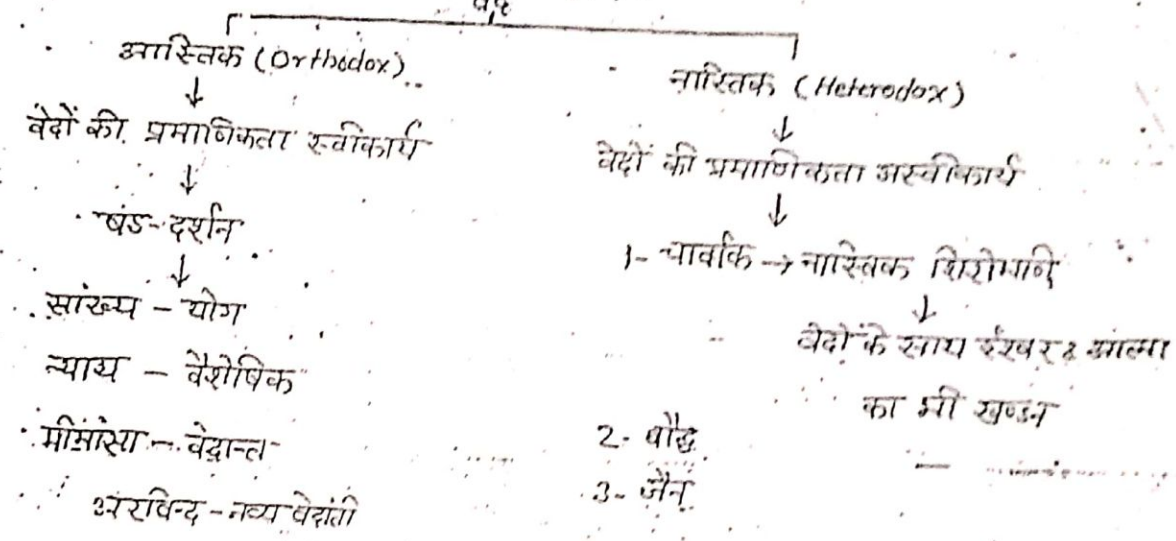 वेद
आस्तिक (Orthodox)
↓
वेदों की प्रमाणिकता स्वीकार्य
↓
षंड-दर्शन
↓
सांख्य - योग
न्याय - वैशेषिक
मीमांसा - वेदान्त
अरविन्द - नव्य वेदांती
नास्तिक (Heterodox)
↓
वेदों की प्रमाणिकता अस्वीकार्य
↓
1- चार्वाक → नास्तिक शिरोमणि
↓
वेदों के साथ ईश्वर & आत्मा
का भी खण्डन
2- बौद्ध
3- जैन